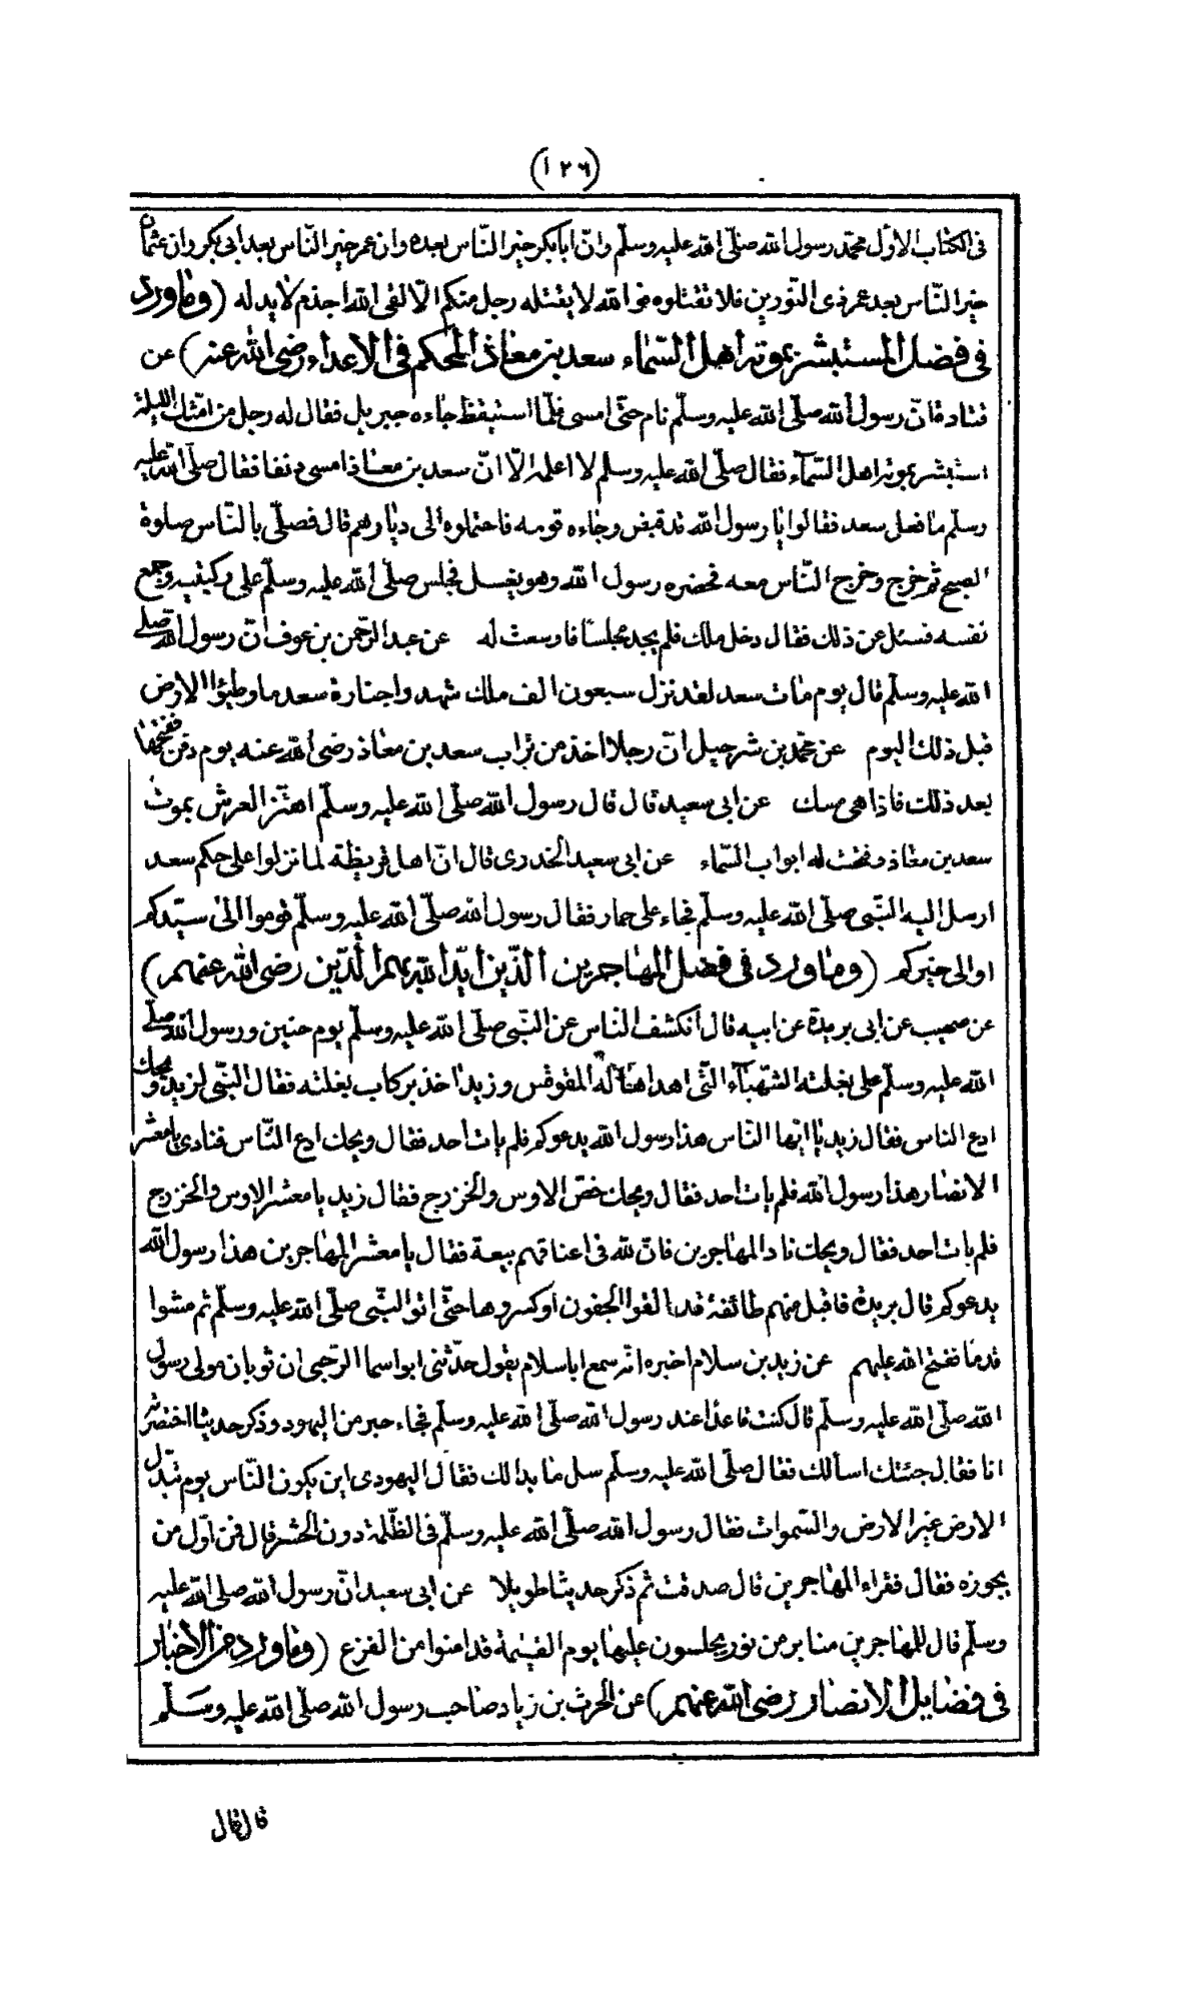 (١٢٦)
فى الكتاب الاوّل محمّد رسول الله صلّى الله عليه وسلّم وانّ ابا بكر خير النّاس بعده وان عمر خير النّاس بعد ابى بكر وان عثمان
خير النّاس بعد عمر ذى النّورين فلا تقتلوه فوالله لا يقتله رجل منكم الّا لقى الله اجذم لا يد له (وما ورد
فى فضل المستبشر بموته اهل السّماء سعد بن معاذ المحكم فى الاعداء رضى الله عنه) عن
قتادة انّ رسول الله صلّى الله عليه وسلّم نام حتّى امسى فلمّا استيقظ جاءه جبريل فقال له رجل من امّتك الليلة
استبشر بموته اهل السّمآء فقال صلّى الله عليه وسلم لا اعلمه الّا انّ سعد بن معاذ امسى دنفا فقال صلّى الله عليه
وسلم ما فعل سعد فقالوا يا رسول الله قد قبض وجاءه قومه فاحتملوه الى ديارهم قال فصلّى بالنّاس صلوة
الصبح ثم خرج وخرج النّاس معه فحضره رسول الله وهو يغسل فجلس صلّى الله عليه وسلّم على ركبتيه وجمع
نفسه فسئل عن ذلك فقال دخل ملك فلم يجد مجلسا فاوسعت له عن عبد الرّحمن بن عوف انّ رسول الله صلى
الله عليه وسلّم قال يوم مات سعد لقد نزل سبعون الف ملك شهدوا جنازة سعد ما وطئوا الارض
قبل ذلك اليوم عن محمّد بن شرحبيل انّ رجلا اخذ من تراب سعد بن معاذ رضى الله عنه يوم دفن ففتحها
بعد ذلك فاذا هى مسك عن ابى سعيد قال قال رسول الله صلّى الله عليه وسلّم اهتز العرش بموت
سعد بن معاذ وفتحت له ابواب السّماء عن ابى سعيد الخدرى قال انّ اهل قريظة لما نزلوا على حكم سعد
ارسل اليه النّبى صلّى الله عليه وسلّم فجاء على حمار فقال رسول الله صلّى الله عليه وسلّم قوموا الى سيّدكم
او الى خيركم (وما ورد فى فضل المهاجرين الذّين ايّد الله بهم الدّين رضى الله عنهم)
عن صهيب عن ابى بريدة عن ابيه قال انكشف الناس عن النّبى صلّى الله عليه وسلّم يوم حنين ورسول الله صلى
الله عليه وسلّم على بغلته الشّهبآء الّتى اهداها له المقوقس وزيد اخذ بركاب بغلته فقال النّبى لزيد ويحك
ادع الناس فقال زيد يا ايّها النّاس هذا رسول الله يدعوكم فلم يات احد فقال ويحك ادع النّاس فنادى يا معشر
الانصار هذا رسول الله فلم يات احد فقال ويحك خصّ الاوس والخزرج فقال زيد يا معشر الاوس والخزرج
فلم يات احد فقال ويحك ناد المهاجرين فانّ لله فى اعناقهم بيعة فقال يا معشر المهاجرين هذا رسول الله
يدعوكم قال بريدة فاقبل منهم طائفة قد القوا الجفون او كسروها حتّى اتوا النّبى صلّى الله عليه وسلّم ثم مشوا
قدما ففتح الله عليهم عن زيد بن سلام اخبره انّه سمع ابا سلام يقول حدّثنى ابو اسما الرّحبى ان ثوبان مولى رسول
الله صلّى الله عليه وسلّم قال كنت قاعدا عند رسول الله صلّى الله عليه وسلّم فجاء حبر من اليهود وذكر حديثا اختصرته
انا فقال جئتك اسالك فقال صلّى الله عليه وسلّم سل ما بدا لك فقال اليهودى اين يكون النّاس يوم تبدّل
الارض غير الارض والسّموات فقال رسول الله صلّى الله عليه وسلّم فى الظّلمة دون الحشر قال فمن اوّل من
يجوزه فقال فقراء المهاجرين قال صدقت ثم ذكر حديثا طويلا عن ابى سعيد انّ رسول الله صلى الله عليه
وسلّم قال للمهاجرين منابر من نور يجلسون عليها يوم القيٰمة قد امنوا من الفزع (وما ورد من الاخبار
فى فضايل الانصار رضى الله عنهم) عن الحرث بن زياد صاحب رسول الله صلّى الله عليه وسلّم
قال قال